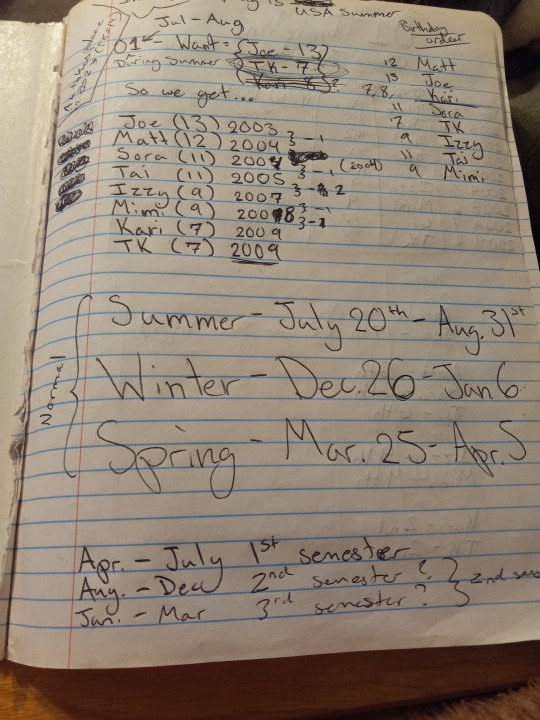 USA summer
Jul - Aug
01 - Want - {Joe - 13}
During Summer TK - 7
Kari - 8
So we get...
Joe (13) 2003
Matt (12) 2004 3-1
Sora (11) 2004
Tai (11) 2005 3-1 (2004)
Izzy (9) 2007 3-2
Mimi (9) 2008 3-1
Kari (7) 2009 3-1
TK (7) 2009
Birthday order
12 Matt
13 Joe
7,8, Kari
11 Sora
7 TK
9 Izzy
11 Tai
9 Mimi
Normal
Summer - July 20th - Aug. 31st
Winter - Dec. 26 - Jan 6
Spring - Mar. 25 - Apr. 5
Apr. - July 1st semester
Aug. - Dec 2nd semester ?
Jan. - Mar 3rd semester ?
} 2nd